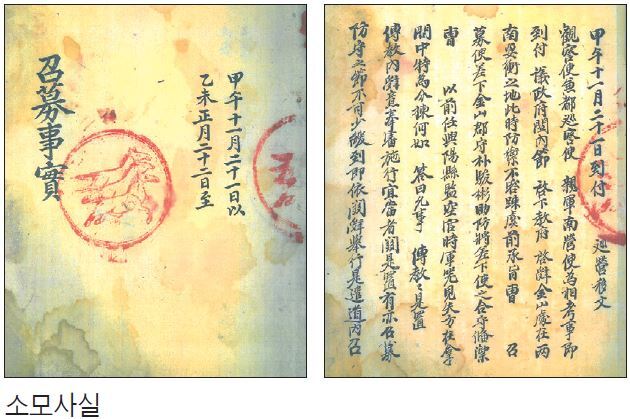 甲午十一月二十一日以
乙未正月二十二日至
召募事實
甲午十一月二十一日到付 巡營移文
觀察使兼都巡察使 親軍南營使爲相考事即
到付 議政府關內節 啓下敎府 啓辭金山處在兩
南要衝之地此時防禦不容踈虞前承旨曺 召
募使差下金山郡守朴駿彬助防將差下使之合守備禦
曺 以前任興陽縣監空官時軍器見失方在拿
問中特爲分揀何如 答曰允事 傳敎是置
傳敎內辭意奉審施行宜當者關是置有亦召募
防守之節不可少緩到即依關辭擧行是遣道內召
소모사실